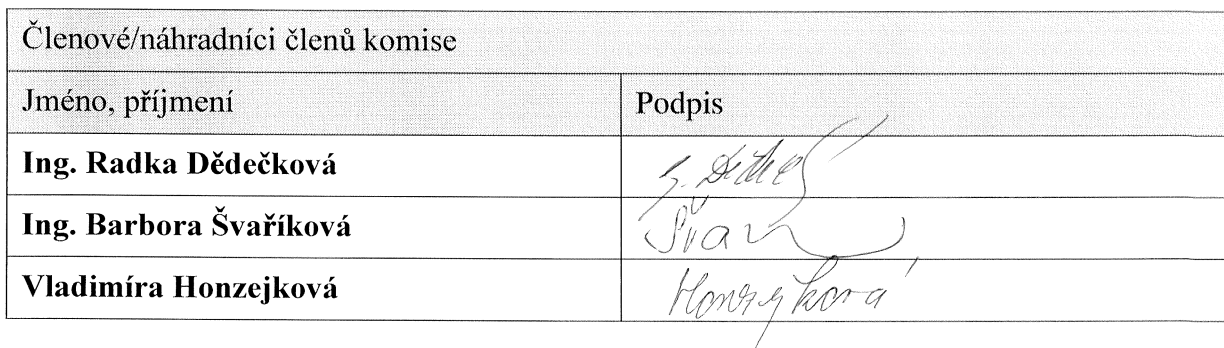 Členové/náhradníci členů komise
Jméno, příjmení Podpis
Ing. Radka Dědečková
Ing. Barbora Švaříková
Vladimíra Honzejková Honzejková